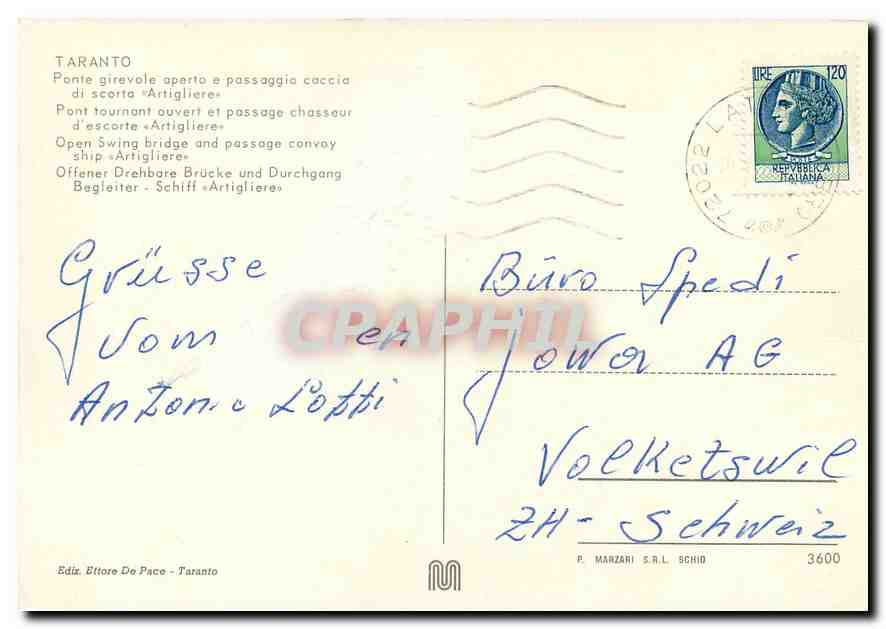 TARANTO
Ponte girevole aperto e passaggio caccia
di scorta «Artigliere»
Pont tournant ouvert et passage chasseur
d'escorte «Artigliere»
Open Swing bridge and passage convoy
ship «Artigliere»
Offener Drehbare Brücke und Durchgang
Begleiter - Schiff «Artigliere»
LIRE 120
POSTE
REPVBBLICA
ITALIANA
72022 LAT
Grüsse
vom en
Antonio Lotti
CRAPHIL
Büro Spedi
Jowa AG
Volketswil
ZH - Schweiz
Ediz. Ettore De Pace - Taranto
P. MARZARI S.R.L. SCHIO 3600